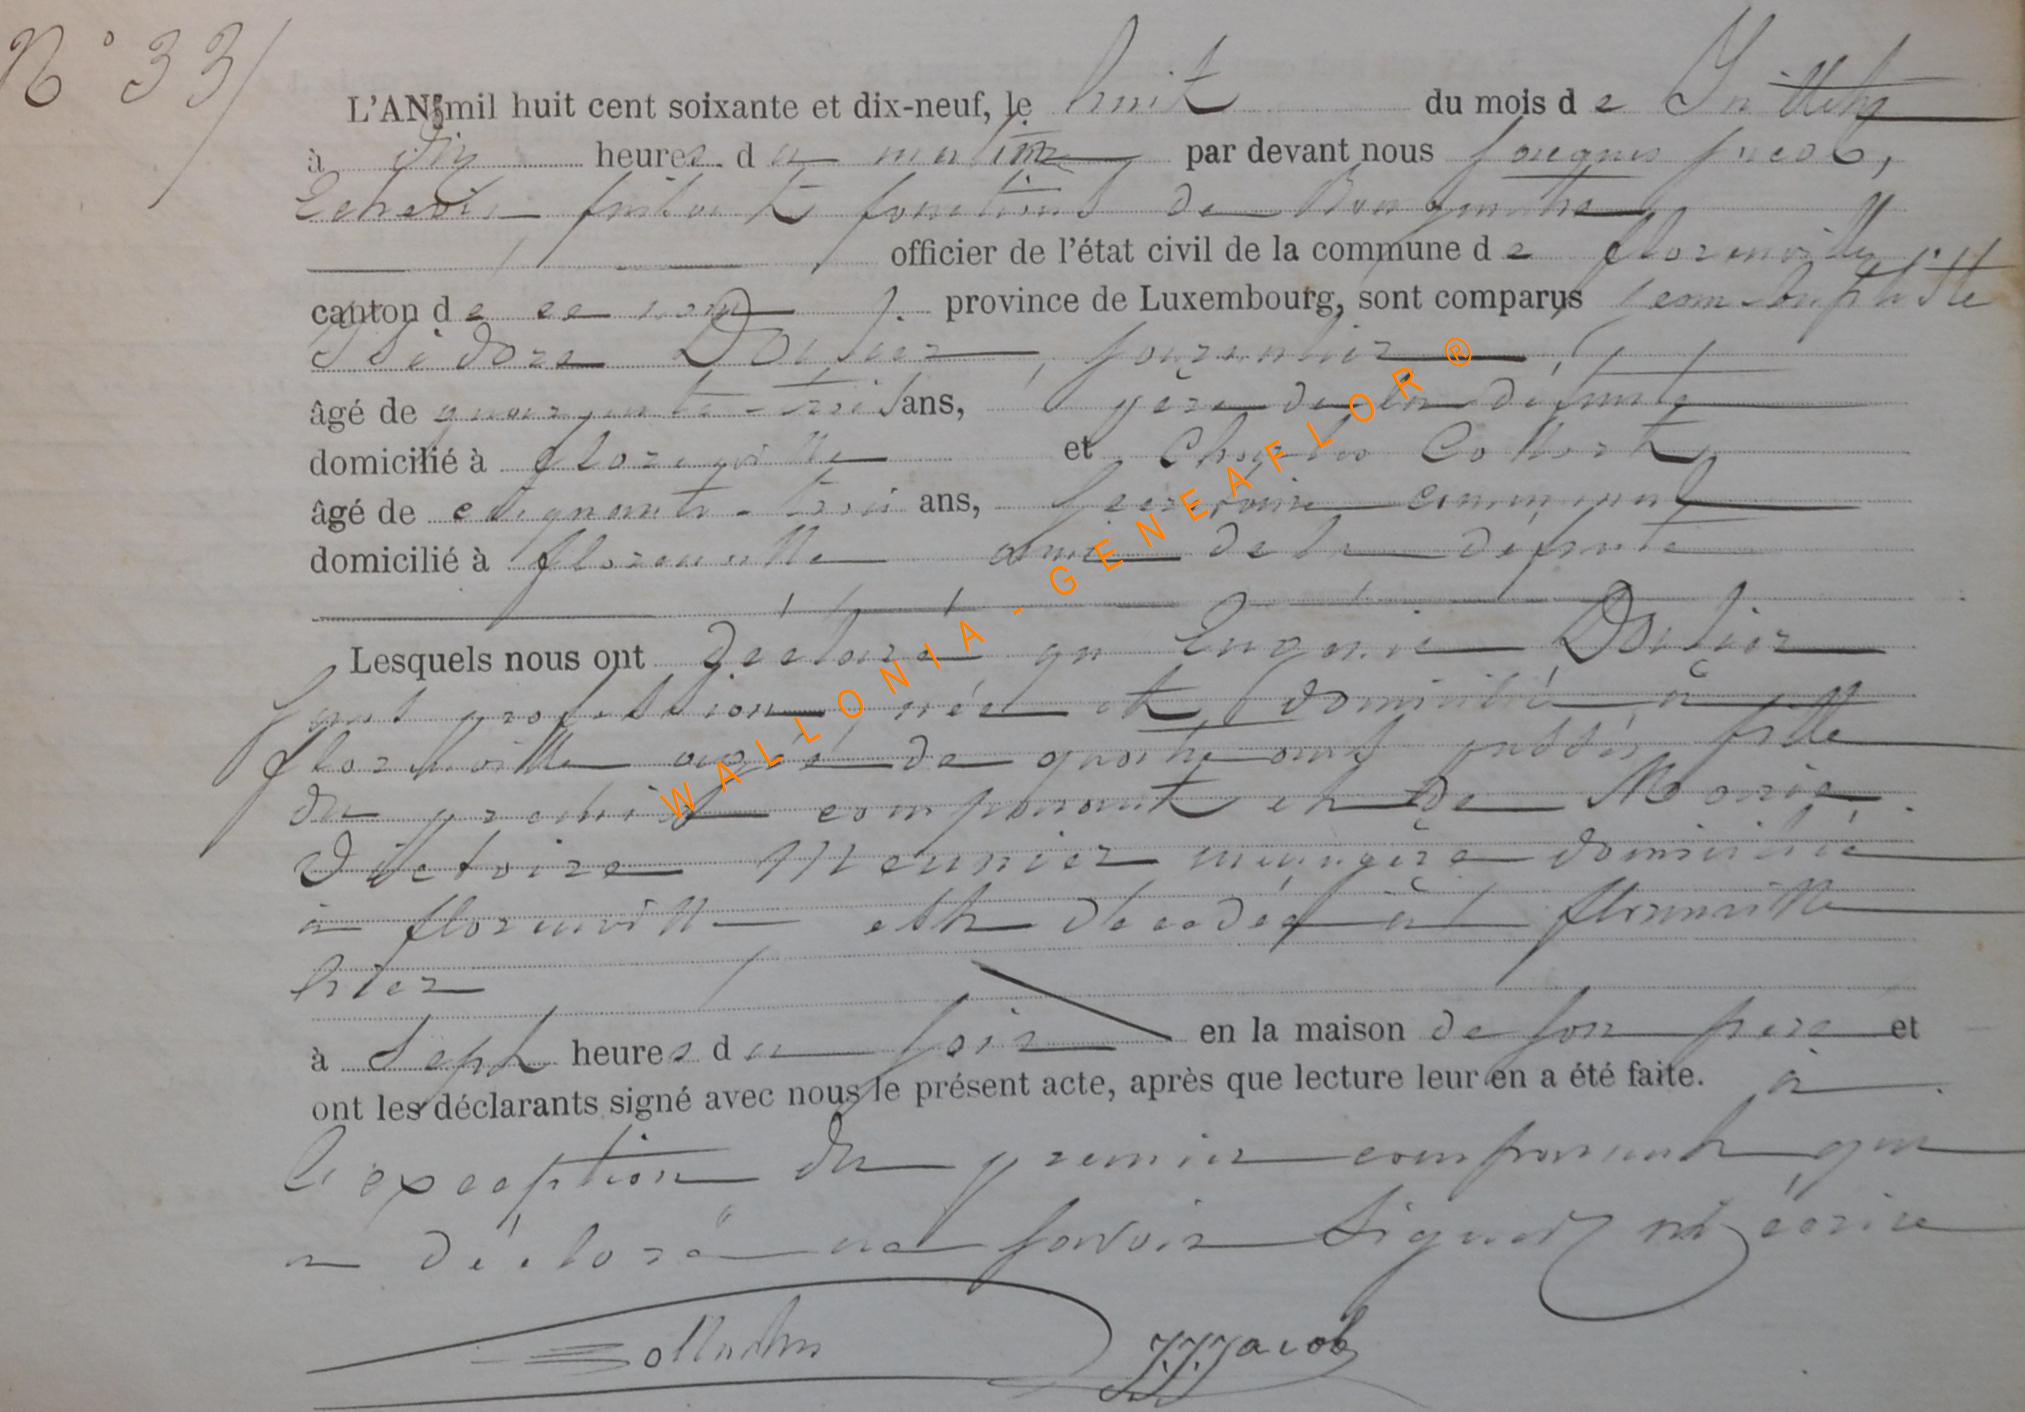 N° 33
L'AN mil huit cent soixante et dix-neuf, le huit du mois de Juillet
à dix heures du matin par devant nous Jacques Jacob,
Echevin faisant fonctions de Bourgmestre
officier de l'état civil de la commune de florenville
canton de ce nom province de Luxembourg, sont comparus Jean-baptiste
Isidore journalier,
âgé de quarante-trois ans, père de la défunte
domicilié à florenville et Charles
âgé de cinquante-trois ans, Secrétaire communal
domicilié à florenville ami de la défunte
Lesquels nous ont déclaré qu Eugénie
sans profession née et domiciliée à
florenville agée de quatre ans passés, fille
du premier comparant et de Marie
Victoire Meunier ménagère domiciliée
à florenville est décédée à florenville
hier
à Sept heures du soir en la maison de son père et
ont les déclarants signé avec nous le présent acte, après que lecture leur en a été faite. à
l'exception du premier comparant qui
a déclaré ne savoir signer ni écrire
JJJacob
WALLONIA - GENEAFLOR ®